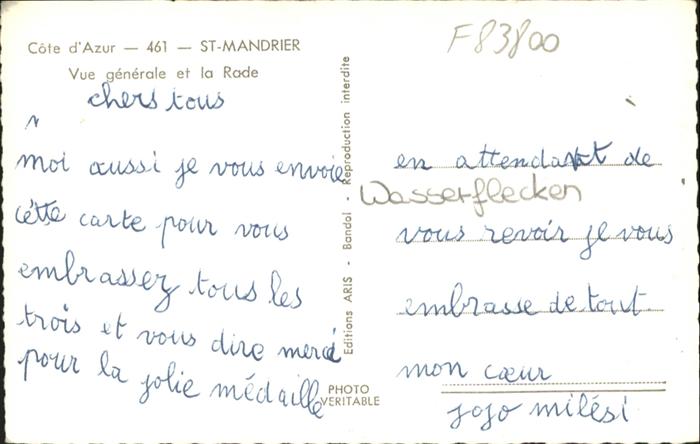 Côte d'Azur — 461 — ST-MANDRIER
Vue générale et la Rade
chers tous
moi aussi je vous envoie
cette carte pour vous
embrassez tous les
trois et vous dire merci
pour la jolie médaille
Editions ARIS - Bandol - Reproduction interdite
PHOTO
VERITABLE
F83800
en attendant de
Wasserflecken
vous revoir je vous
embrasse de tout
mon cœur
jojo milési